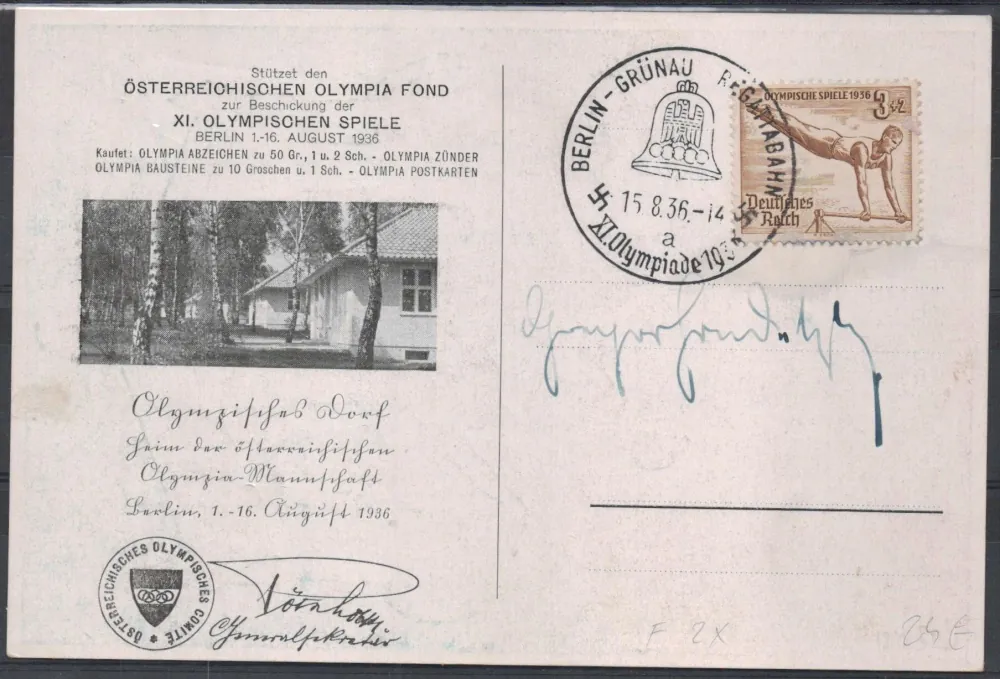 Stützet den
ÖSTERREICHISCHEN OLYMPIA FOND
zur Beschickung der
XI. OLYMPISCHEN SPIELE
BERLIN 1.-16. AUGUST 1936
Kaufet: OLYMPIA ABZEICHEN zu 50 Gr., 1 u. 2 Sch. - OLYMPIA ZÜNDER
OLYMPIA BAUSTEINE zu 10 Groschen u. 1 Sch. - OLYMPIA POSTKARTEN
Olympisches Dorf
Heim der österreichischen
Olympia-Mannschaft
Berlin, 1. - 16. August 1936
ÖSTERREICHISCHES OLYMPISCHES COMITÉ *
Generalsekretär
BERLIN - GRÜNAU REGATTABAHN
15.8.36.-14
a
XI. Olympiade 1936
OLYMPISCHE SPIELE 1936 3+2
Deutsches
Reich
F 2X